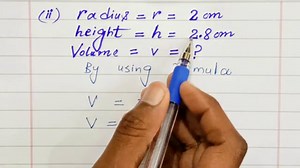 (ii) radius = r = 2 cm
height = h = 2.8 cm
Volume = v = ?
By using
V =
V =